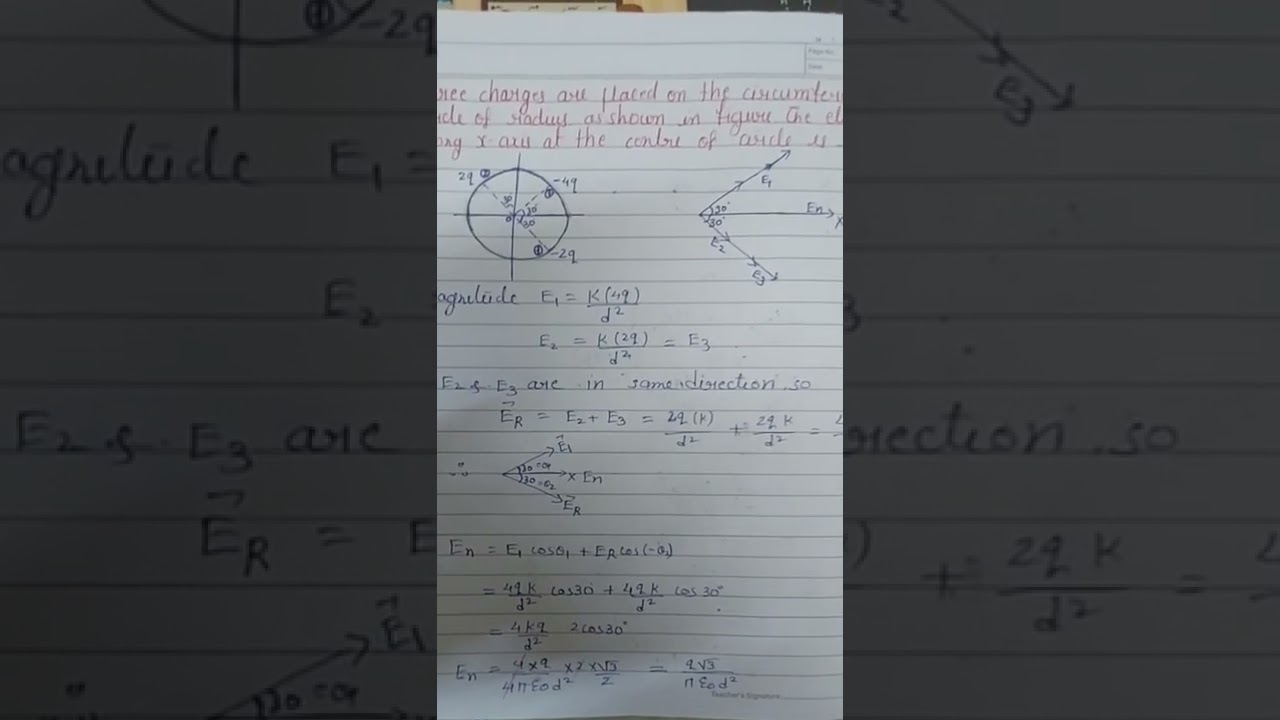 Page No.
Date
ree charges are placed on the circumfer
cle of radius as shown in figure The el
ong x-axis at the centre of circle is
2q -4q E1
30° 30° 30° 30° En x
0 30° E2
-2q E3
agnitude E1 = K(4q)/d²
E2 = K(2q)/d² = E3
E2 & E3 are in same direction so
E⃗R = E2 + E3 = 2q(K)/d² + 2qK/d² =
E⃗1
∴ 30=θ1 x En
30=θ2
E⃗R
En = E1 cosθ1 + ER cos(-θ2)
= 4qK/d² cos30 + 4qK/d² cos30°
= 4Kq/d² 2cos30°
En = 4×q/4πε0d² ×2×√3/2 = q√3/πε0d²
Teacher's Signature